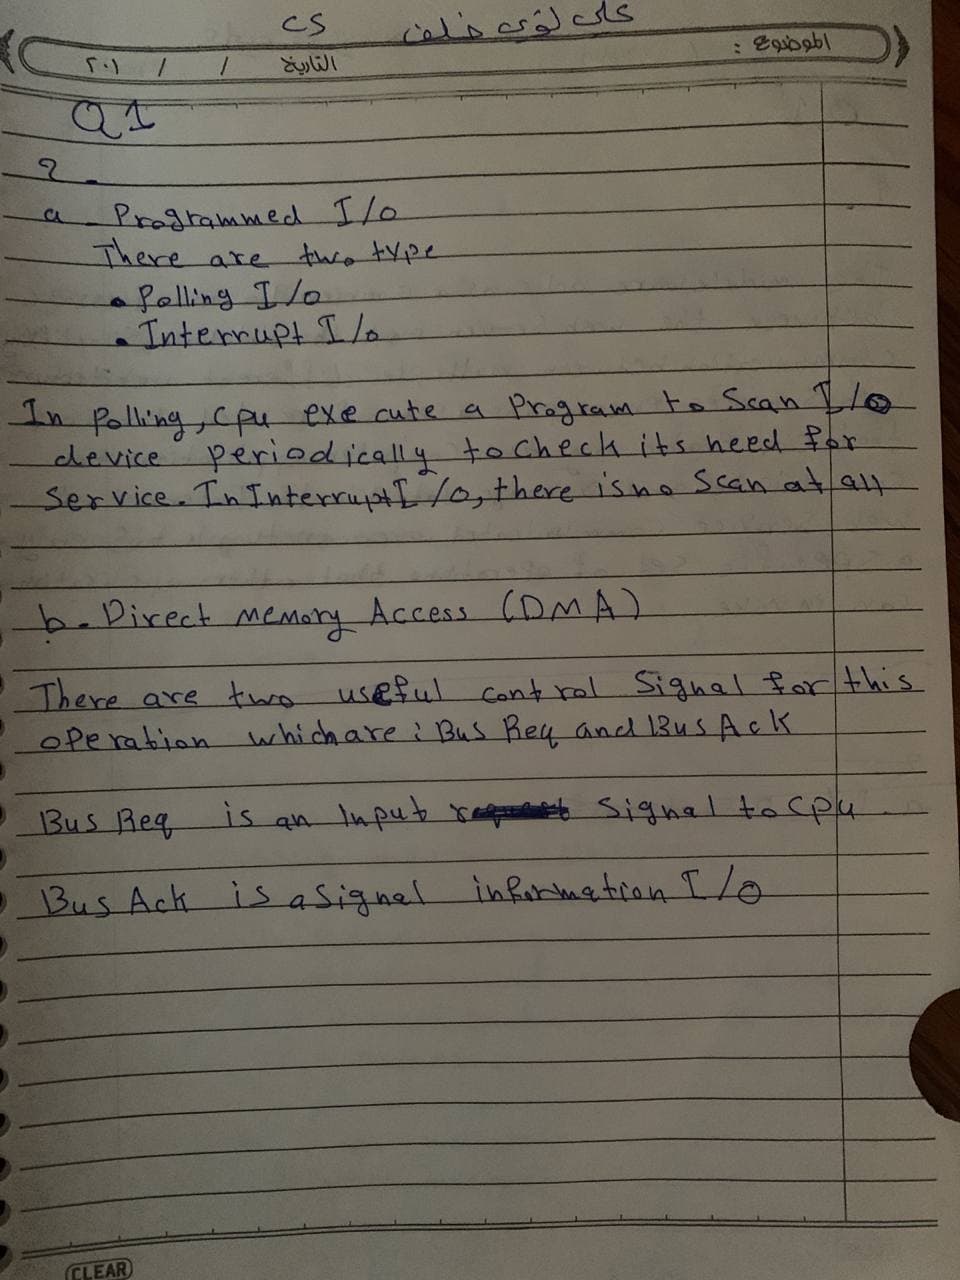 CS على لؤي خلف
الموضوع :
التاريخ / / ٢٠١
Q1
2 -
a - Programmed I/o
There are two type
• Polling I/o
• Interrupt I/o
In Polling, Cpu exe cute a Program to Scan I/o
device periodically to check its need for
Service. In Interrupt I/o, there is no Scan at all
b - Direct memory Access (DMA)
There are two useful control Signal for this
operation which are : Bus Req and Bus Ack
Bus Req is an Input Signal to cpu
Bus Ack is a Signal information I/o
CLEAR